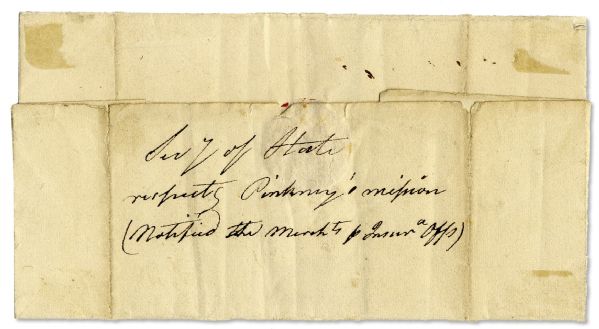 Secy of State
respectg Pinkney's mission
(Notified the Merchts & Insura Offs)